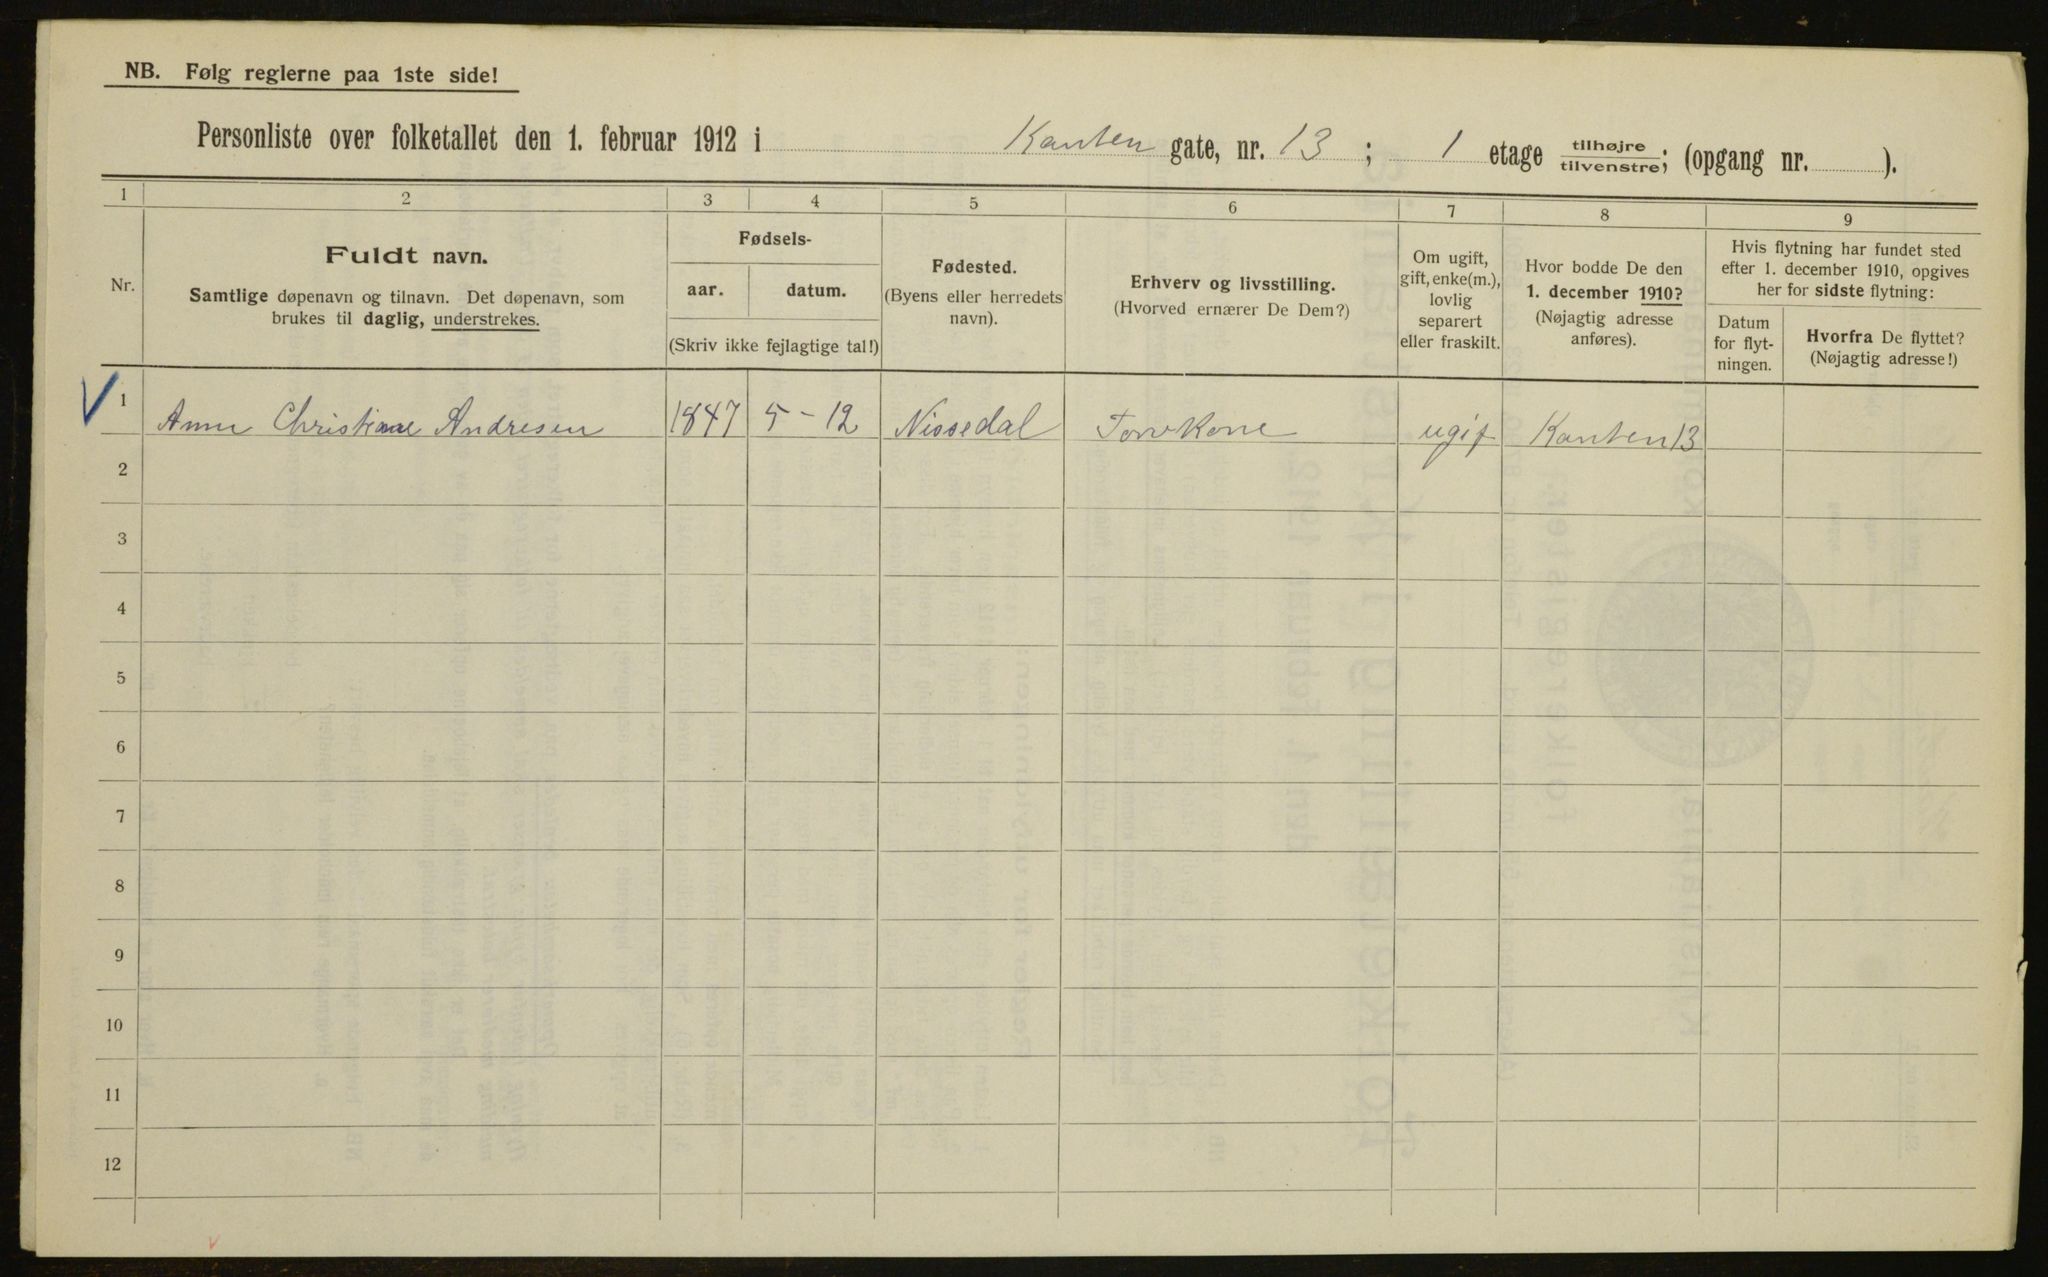 NB. Følg reglerne paa 1ste side!
Personliste over folketallet den 1. februar 1912 i Kanten gate, nr. 13 ; 1 etage tilhøjre/tilvenstre; (opgang nr. ).
1 2 3 4 5 6 7 8 9
Nr.
Fuldt navn.
Samtlige døpenavn og tilnavn. Det døpenavn, som
brukes til daglig, understrekes.
Fødsels-
aar. datum.
(Skriv ikke fejlagtige tal!)
Fødested.
(Byens eller herredets
navn).
Erhverv og livsstilling.
(Hvorved ernærer De Dem?)
Om ugift,
gift, enke(m.),
lovlig
separert
eller fraskilt.
Hvor bodde De den
1. december 1910?
(Nøjagtig adresse
anføres).
Hvis flytning har fundet sted
efter 1. december 1910, opgives
her for sidste flytning:
Datum
for flyt-
ningen.
Hvorfra De flyttet?
(Nøjagtig adresse!)
1 Anne Christiane Andresen 1847 5-12 Nissedal Torvkone ugif Kanten 13
2
3
4
5
6
7
8
9
10
11
12